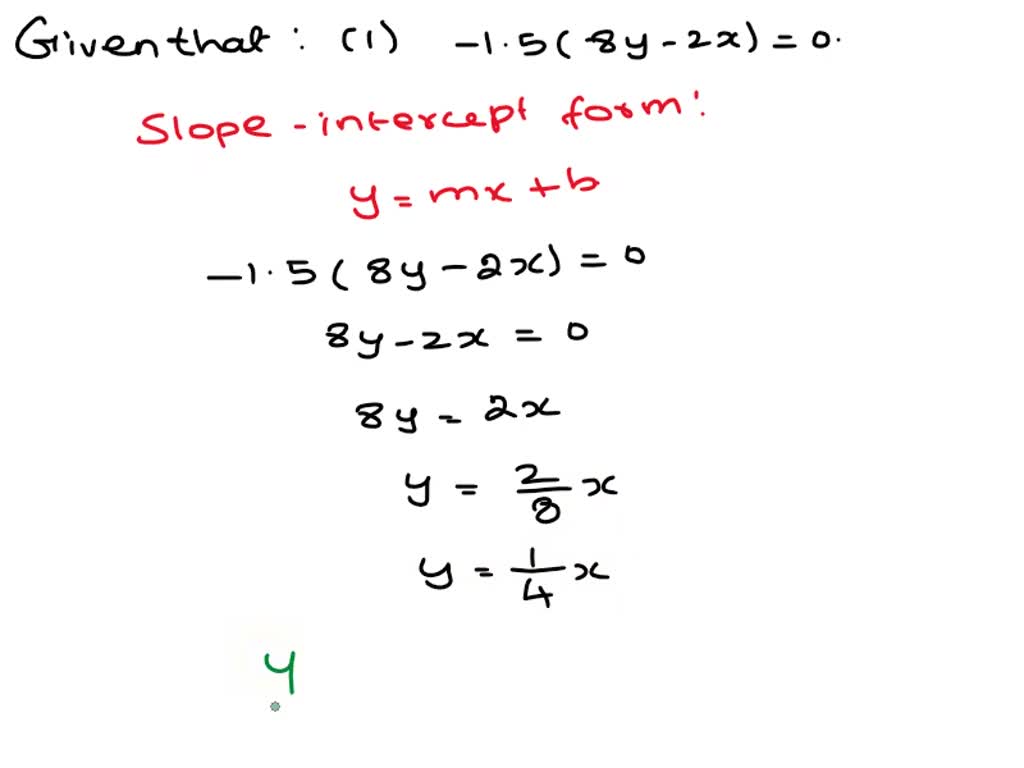 Given that : (1) -1.5(8y-2x)=0.
Slope-intercept form:
y=mx+b
-1.5(8y-2x)=0
8y-2x=0
8y=2x
y=2/8x
y=1/4x
y